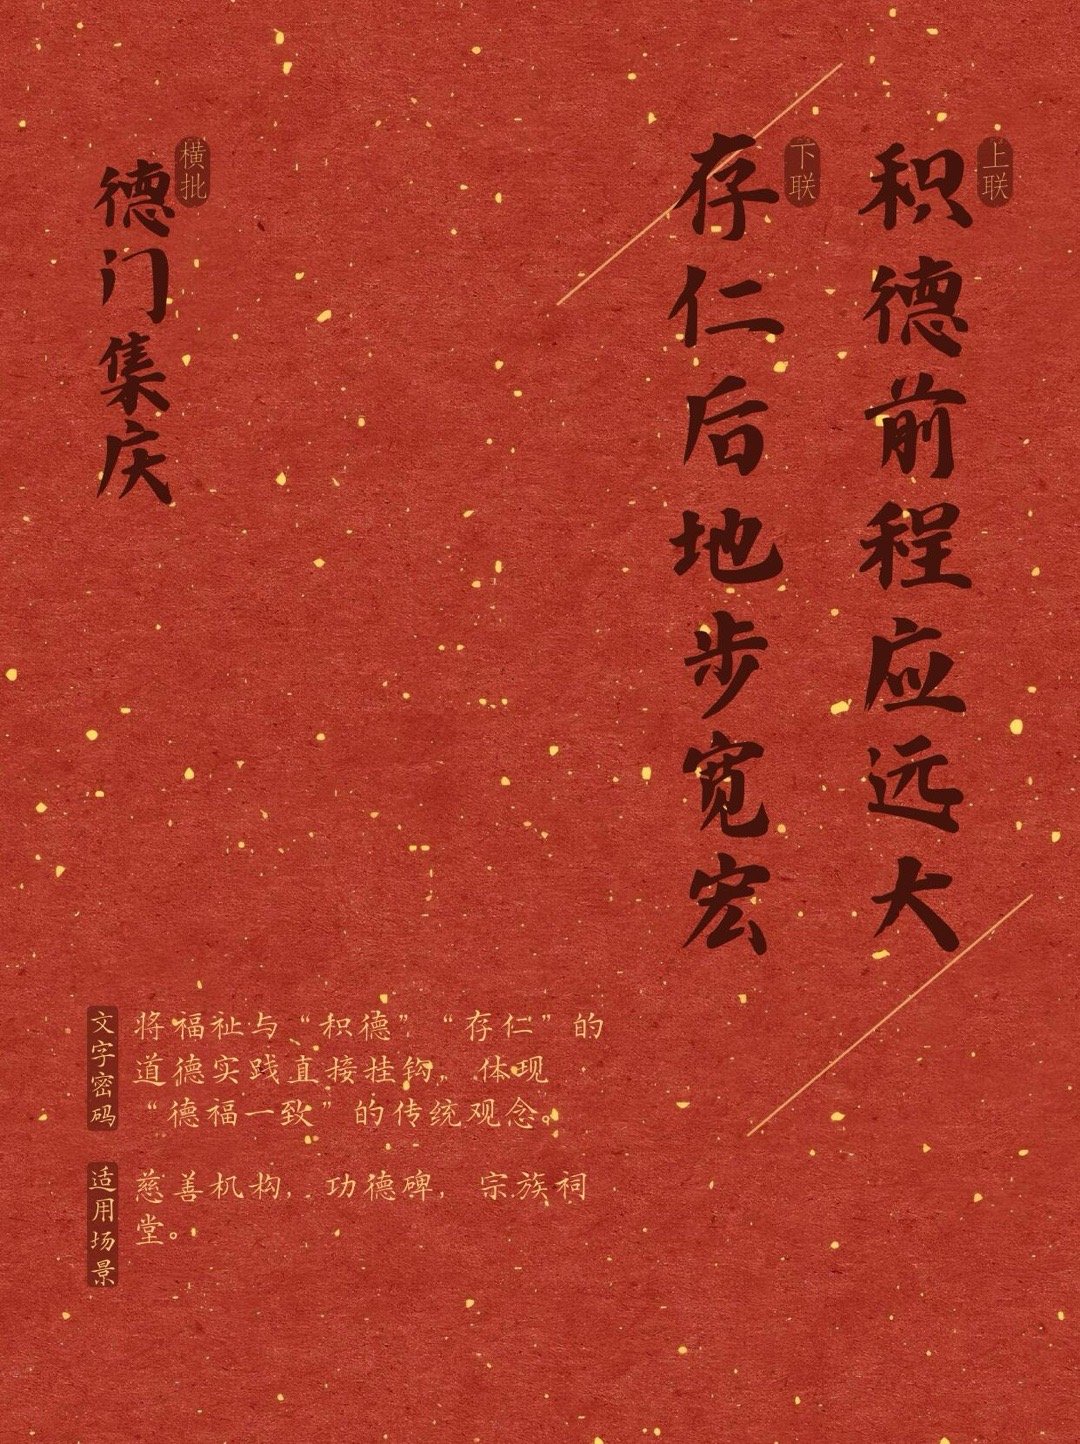 上联
积德前程应远大
下联
存仁后地步宽宏
横批
德门集庆
文字密码
将福祉与“积德”“存仁”的
道德实践直接挂钩，体现
“德福一致”的传统观念。
适用场景
慈善机构，功德碑，宗族祠
堂。